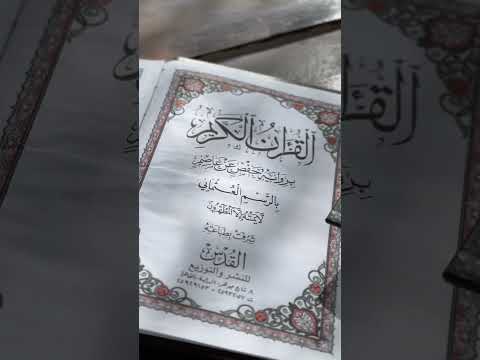 القرآن الكريم
برواية حفص عن عاصم
بالرسم العثماني
لا يمسه إلا المطهرون
شرفت بطباعته
القدس
للنشر والتوزيع